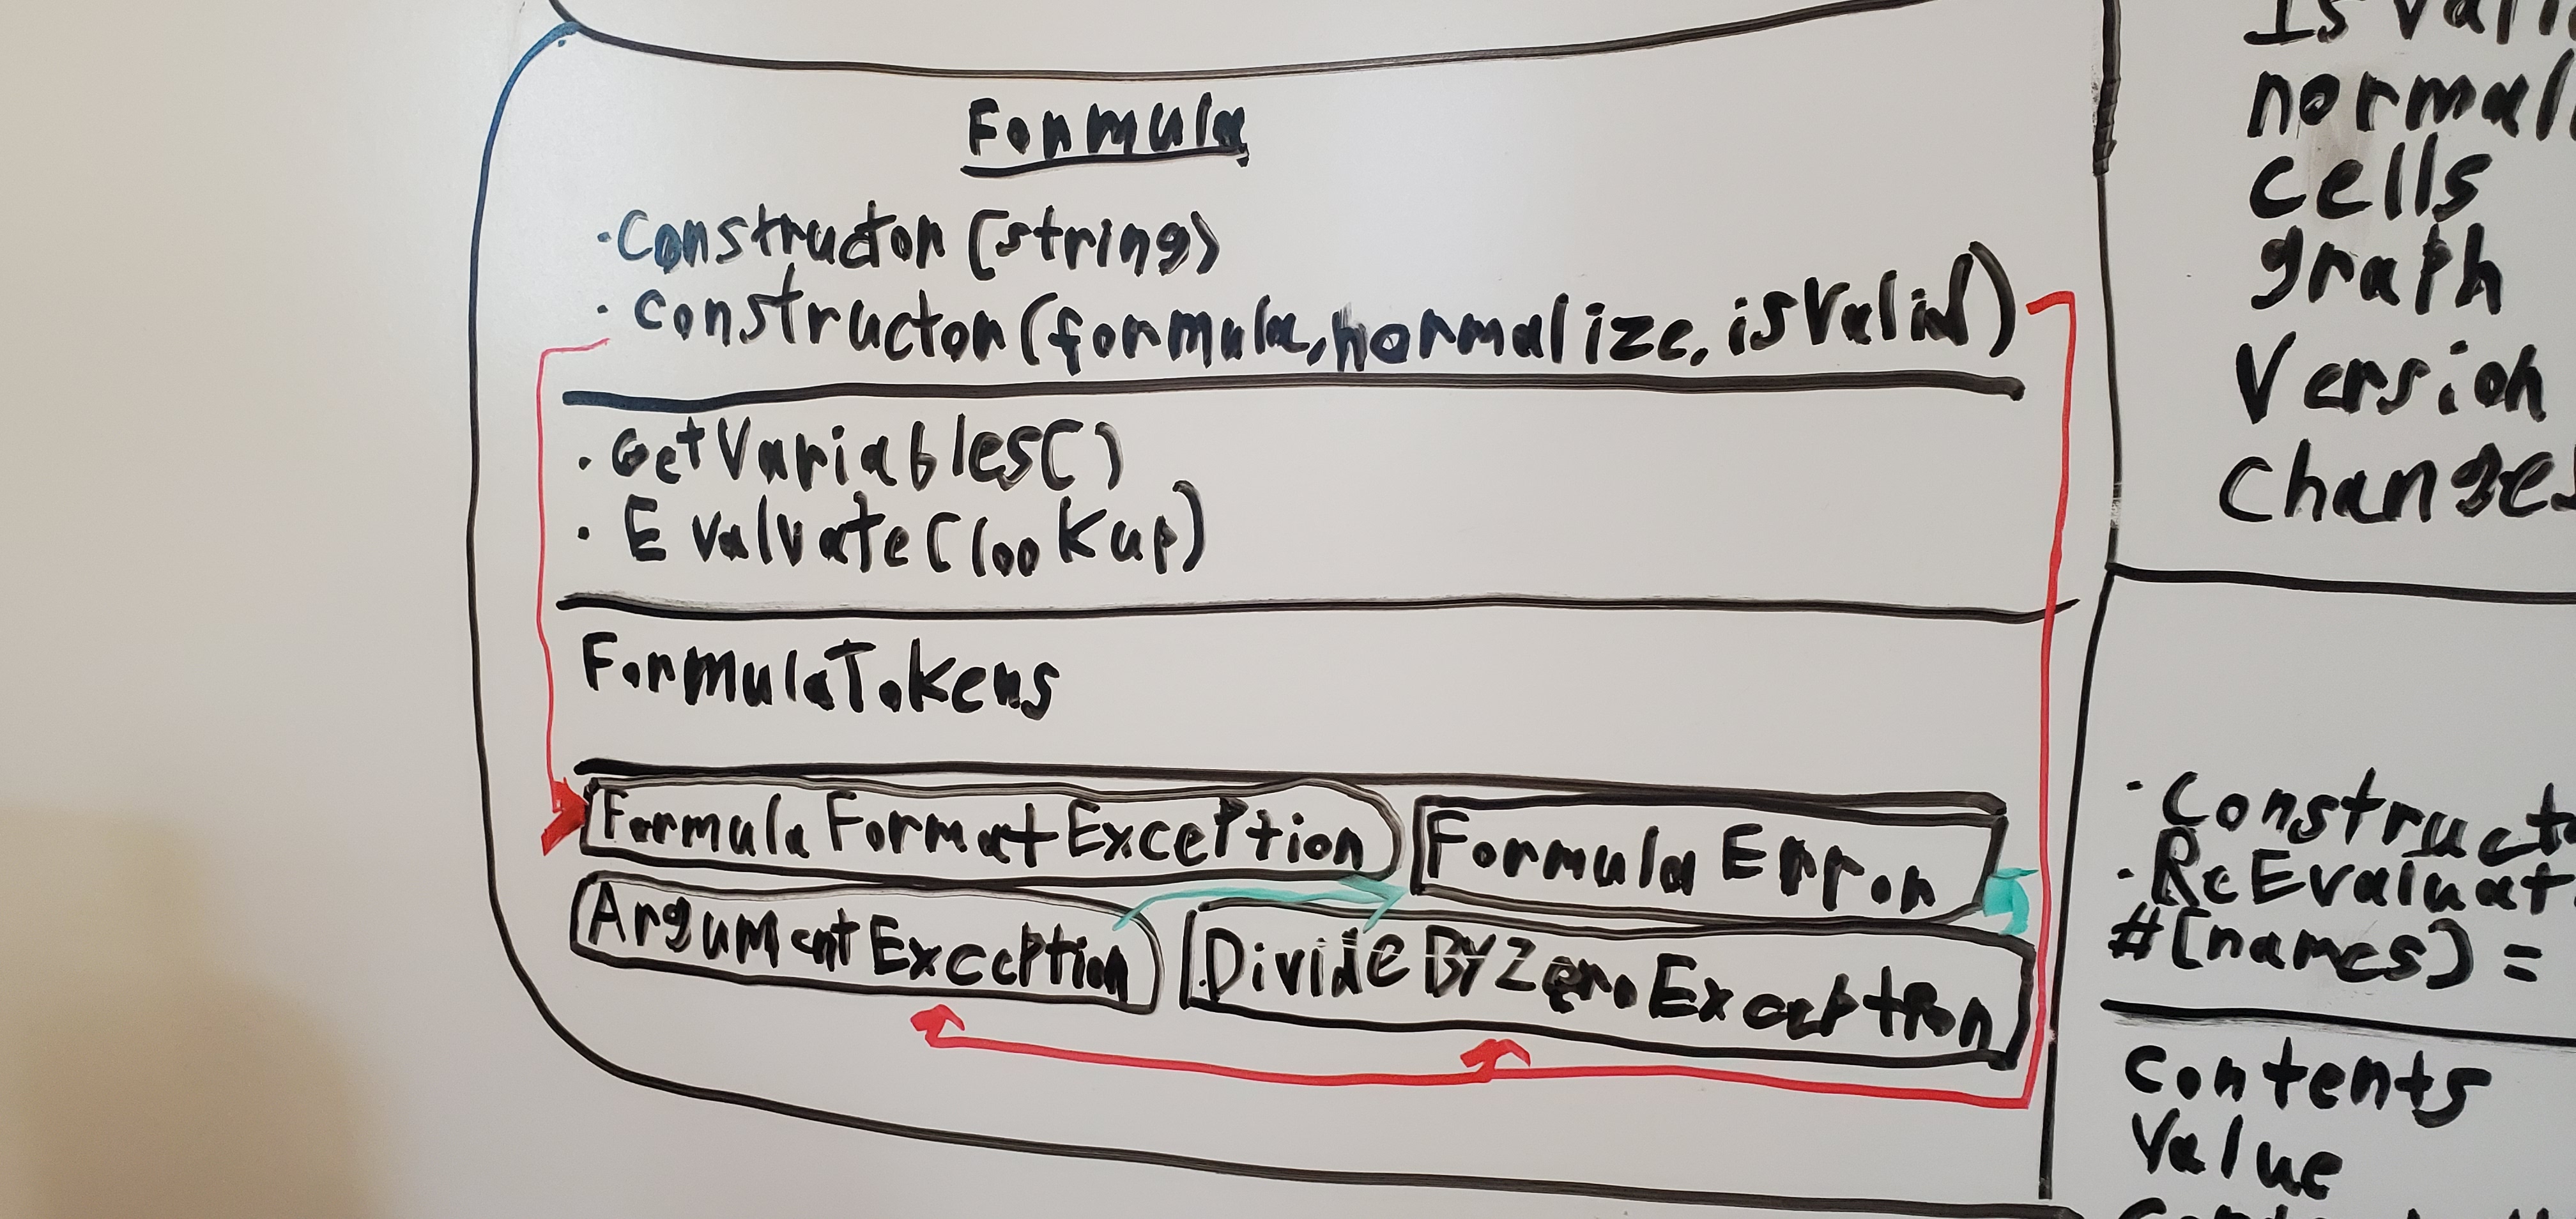 Formula
· Constructor (string)
· Constructor (formula, normalize, isValid)
· GetVariables()
· Evaluate (lookup)
FormulaTokens
FormulaFormatException
FormulaError
ArgumentException
DivideByZeroException
cells
graph
Version
· ReEvaluat
#[names] =
Contents
Value